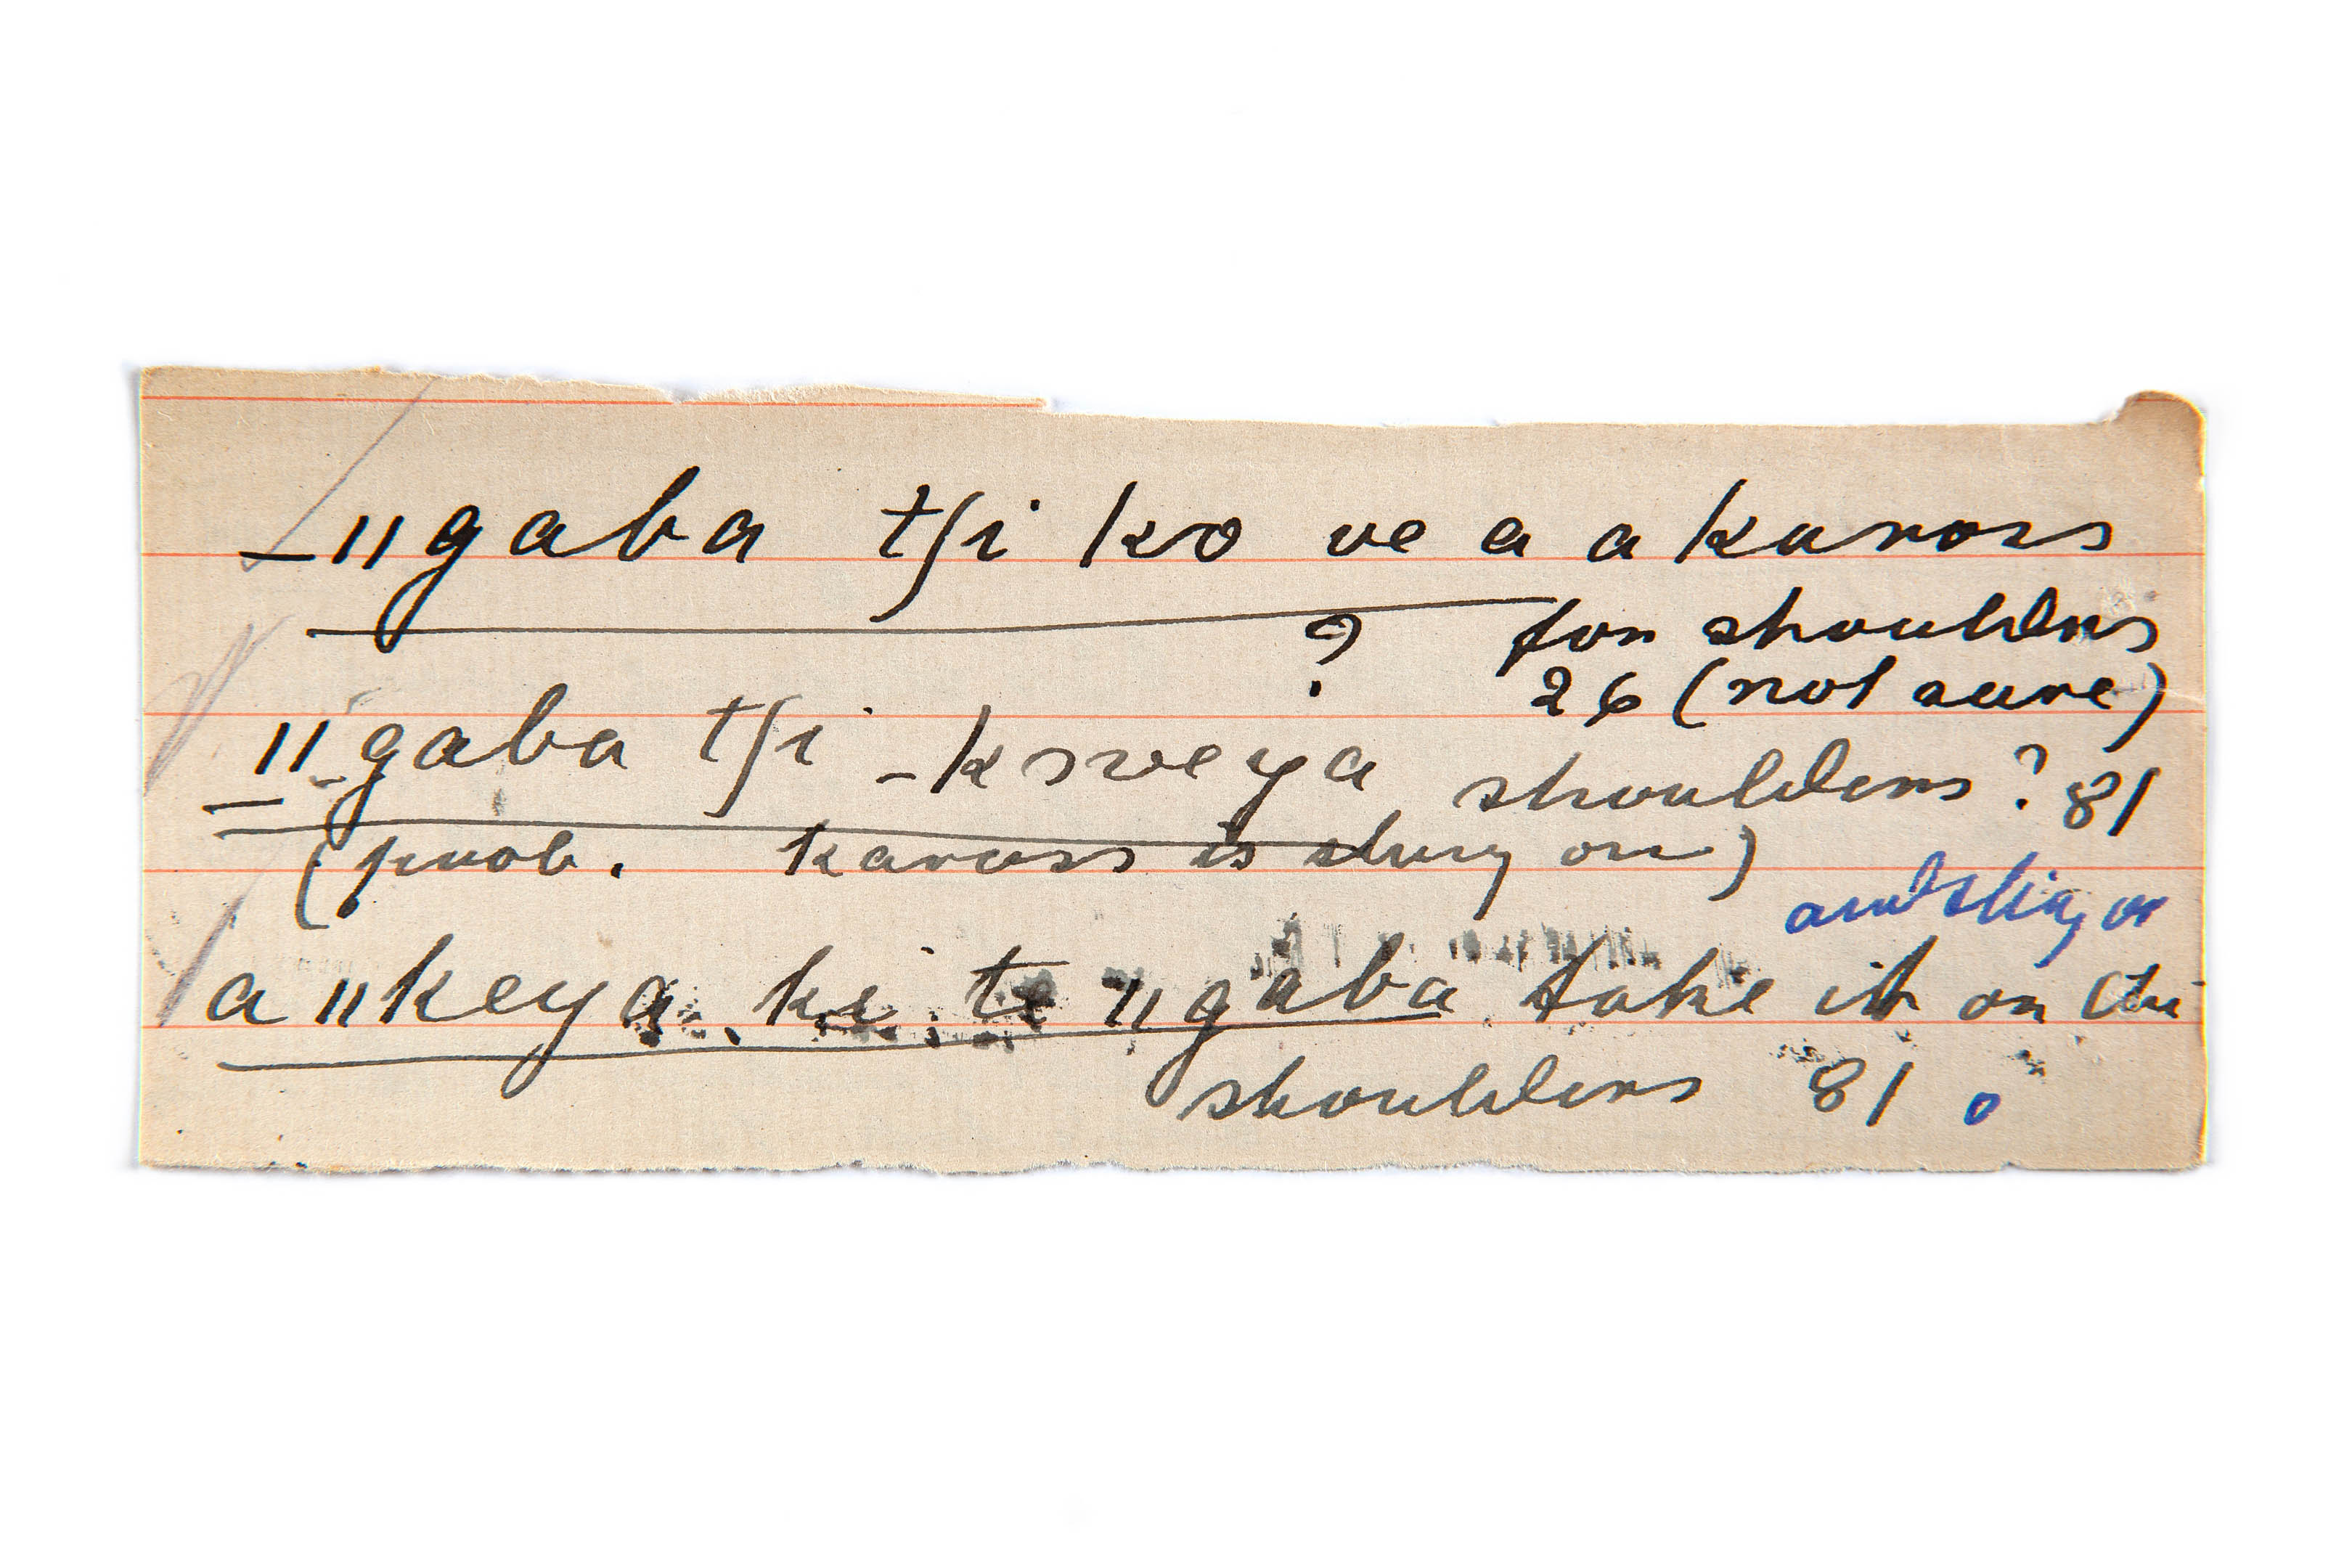 _ǁgaba tʃi ko ve a a kaross
? for shoulders
26 (not sure)
_ǁgaba tʃi _kɔweya shoulders? 81
(prob. kaross is slung on)
and sling on
a ǁkeya ki te ǁgaba take it on the
shoulders 81